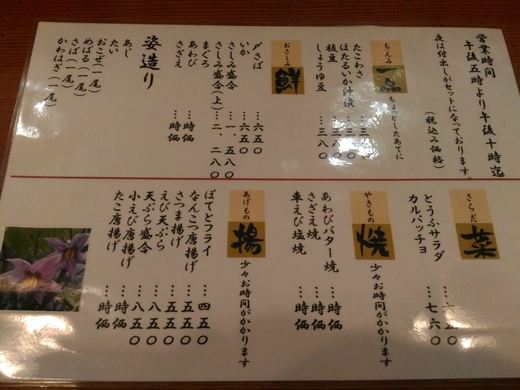 営業時間
午後五時より午後十時迄
夜は付出しがセットになっております。
(税込み価格)
一品
ちんみ
ちょっとしたあてに
たこわさ …三八〇
ほたるいか沖漬 …三八〇
板豆 …三八〇
しょうゆ豆 …三八〇
鮮
おさしみ
〆さば …六五〇
いか …六五〇
さしみ盛合 …一、五八〇
さしみ盛合(上) …二、二八〇
まぐろ …時価
あわび …時価
さざえ …時価
姿造り
あじ
たい
おこぜ(一尾)
めばる(一尾)
さば(一尾)
かわはぎ(一尾)
菜
さらだ
とうふサラダ
カルパッチョ …七六〇
焼
やきもの
少々お時間がかかります
あわびバター焼 …時価
さざえ焼 …時価
車えび塩焼 …時価
揚
あげもの
少々お時間がかかります
ぽてとフライ …四五〇
なんこつ唐揚げ …五五〇
さつま揚げ …五五〇
えび天ぷら …八五〇
天ぷら盛合 …八五〇
小えび唐揚げ …時価
たこ唐揚げ …時価